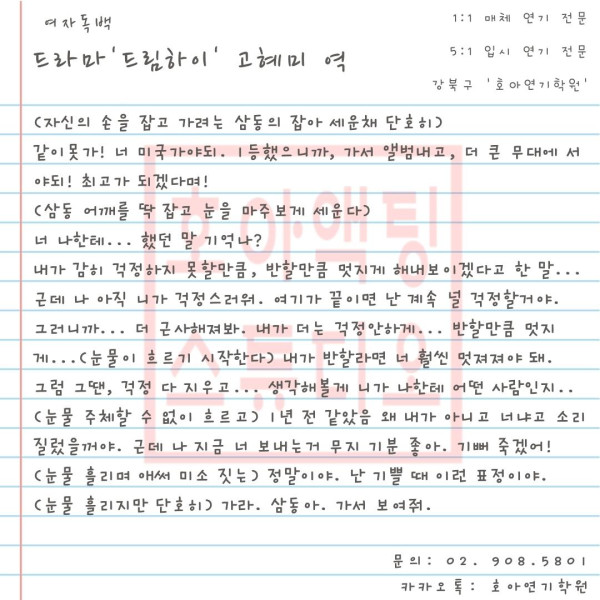 여자독백
1:1 매체 연기 전문
드라마'드림하이' 고혜미 역
5:1 입시 연기 전문
강북구 '호아연기학원'
(자신의 손을 잡고 가려는 삼동의 잡아 세운채 단호히)
같이못가! 너 미국가야되. 1등했으니까, 가서 앨범내고, 더 큰 무대에 서
야되! 최고가 되겠다며!
(삼동 어깨를 딱 잡고 눈을 마주보게 세운다)
너 나한테... 했던 말 기억나?
내가 감히 걱정하지 못할만큼, 반할만큼 멋지게 해내보이겠다고 한 말...
근데 나 아직 니가 걱정스러워. 여기가 끝이면 난 계속 널 걱정할거야.
그러니까... 더 근사해져봐. 내가 더는 걱정안하게... 반할만큼 멋지
게...(눈물이 흐르기 시작한다) 내가 반할라면 너 훨씬 멋져져야 돼.
그럼 그땐, 걱정 다 지우고... 생각해볼게 니가 나한테 어떤 사람인지..
(눈물 주체할 수 없이 흐르고) 1년 전 같았음 왜 내가 아니고 너냐고 소리
질렀을꺼야. 근데 나 지금 너 보내는거 무지 기분 좋아. 기뻐 죽겠어!
(눈물 흘리며 애써 미소 짓는) 정말이야. 난 기쁠 때 이런 표정이야.
(눈물 흘리지만 단호히) 가라. 삼동아. 가서 보여줘.
호아액팅
스튜디오
문의: 02. 908.5801
카카오톡: 호아연기학원